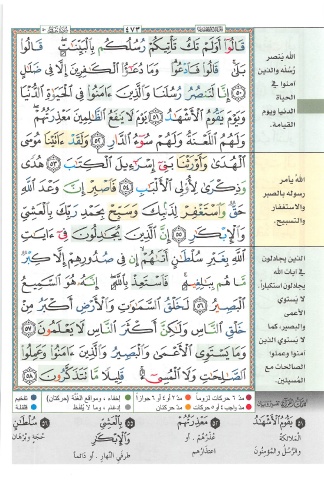 ٤٧٣
قَالُوٓا۟ أَوَلَمْ تَكُ تَأْتِيكُمْ رُسُلُكُم بِٱلْبَيِّنَٰتِ ۖ قَالُوا۟
بَلَىٰ ۚ قَالُوا۟ فَٱدْعُوا۟ ۗ وَمَا دُعَٰٓؤُا۟ ٱلْكَٰفِرِينَ إِلَّا فِى ضَلَٰلٍ
٥٠ إِنَّا لَنَنصُرُ رُسُلَنَا وَٱلَّذِينَ ءَامَنُوا۟ فِى ٱلْحَيَوٰةِ ٱلدُّنْيَا
وَيَوْمَ يَقُومُ ٱلْأَشْهَٰدُ ٥١ يَوْمَ لَا يَنفَعُ ٱلظَّٰلِمِينَ مَعْذِرَتُهُمْ ۖ
وَلَهُمُ ٱللَّعْنَةُ وَلَهُمْ سُوٓءُ ٱلدَّارِ ٥٢ وَلَقَدْ ءَاتَيْنَا مُوسَى
ٱلْهُدَىٰ وَأَوْرَثْنَا بَنِىٓ إِسْرَٰٓءِيلَ ٱلْكِتَٰبَ ٥٣ هُدًى
وَذِكْرَىٰ لِأُو۟لِى ٱلْأَلْبَٰبِ ٥٤ فَٱصْبِرْ إِنَّ وَعْدَ ٱللَّهِ
حَقٌّ وَٱسْتَغْفِرْ لِذَنۢبِكَ وَسَبِّحْ بِحَمْدِ رَبِّكَ بِٱلْعَشِىِّ
وَٱلْإِبْكَٰرِ ٥٥ إِنَّ ٱلَّذِينَ يُجَٰدِلُونَ فِىٓ ءَايَٰتِ
ٱللَّهِ بِغَيْرِ سُلْطَٰنٍ أَتَىٰهُمْ ۙ إِن فِى صُدُورِهِمْ إِلَّا كِبْرٌ
مَّا هُم بِبَٰلِغِيهِ ۚ فَٱسْتَعِذْ بِٱللَّهِ ۖ إِنَّهُۥ هُوَ ٱلسَّمِيعُ
ٱلْبَصِيرُ ٥٦ لَخَلْقُ ٱلسَّمَٰوَٰتِ وَٱلْأَرْضِ أَكْبَرُ مِنْ
خَلْقِ ٱلنَّاسِ وَلَٰكِنَّ أَكْثَرَ ٱلنَّاسِ لَا يَعْلَمُونَ ٥٧
وَمَا يَسْتَوِى ٱلْأَعْمَىٰ وَٱلْبَصِيرُ وَٱلَّذِينَ ءَامَنُوا۟ وَعَمِلُوا۟
ٱلصَّٰلِحَٰتِ وَلَا ٱلْمُسِىٓءُ ۚ قَلِيلًا مَّا تَتَذَكَّرُونَ ٥٨
الله ينصر
رُسله والذين
آمنوا في
الحياة
الدنيا ويوم
القيامة.
اللهُ يأمر
رسوله بالصبر
والاستغفار
والتسبيح.
الذين يجادلون
في آيات الله
يجادلون استكباراً.
لا يستوي
الأعمى
والبصير، كما
لا يستوي الذين
آمنوا وعملوا
الصالحات مع
المسيئين.
مدّ ٦ حركات لزوماً مدّ ٢ أو ٤ أو ٦ جوازاً إخفاء، ومواقع الغُنَّة (حركتان) تفخيم
مدّ واجب ٤ أو ٥ حركات مدّ حركتان إدغام، وما لا يُلفَظ قلقلة
٥١ يَقُومُ الأَشْهَادُ
الملائكة
والرُّسل والمؤمنون
٥٢ مَعْذِرَتُهُمْ
عُذْرُهُمْ. أو
اعتذارهم
٥٥ بِالعَشِيِّ
وَالإِبْكَارِ
طرفي النهار. أو دائماً
٥٦ سُلْطَانٍ
حُجّة وبُرهان